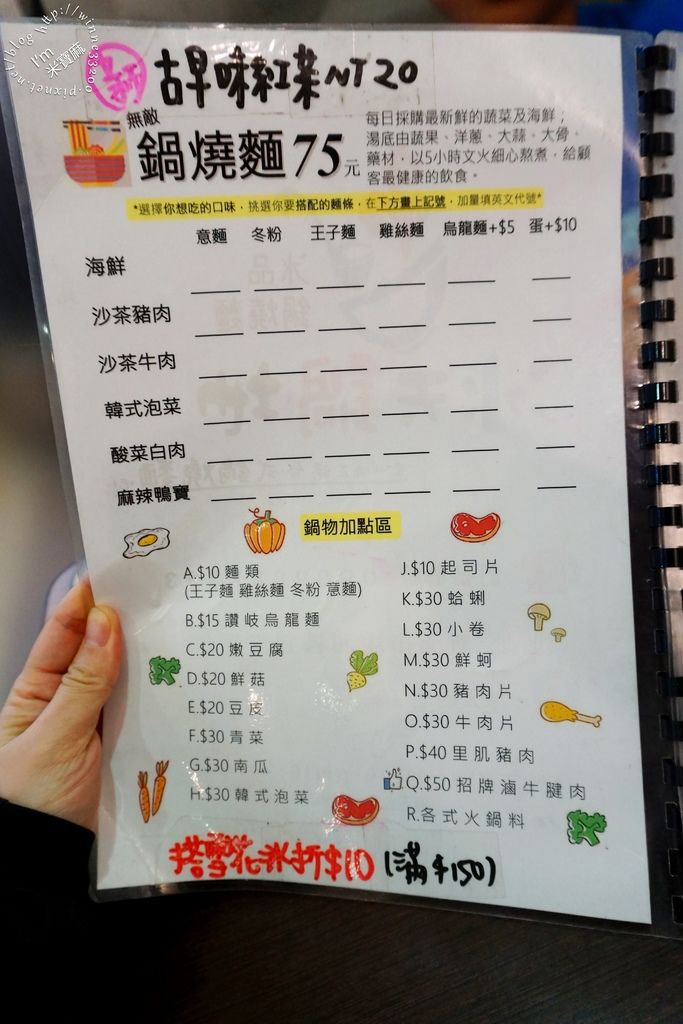 http://winne33200.pixnet.net/blog
I'm
米寶麻
古早味紅茶NT20
無敵
鍋燒麵 75元
每日採購最新鮮的蔬菜及海鮮；
湯底由蔬果、洋蔥、大蒜、大骨、
藥材，以5小時文火細心熬煮，給顧
客最健康的飲食。
*選擇你想吃的口味，挑選你要搭配的麵條，在下方畫上記號，加量填英文代號*
意麵 冬粉 王子麵 雞絲麵 烏龍麵+$5 蛋+$10
海鮮
沙茶豬肉
沙茶牛肉
韓式泡菜
酸菜白肉
麻辣鴨寶
鍋物加點區
A.$10 麵類
(王子麵 雞絲麵 冬粉 意麵)
B.$15 讚岐烏龍麵
C.$20 嫩豆腐
D.$20 鮮菇
E.$20 豆皮
F.$30 青菜
G.$30 南瓜
H.$30 韓式泡菜
J.$10 起司片
K.$30 蛤蜊
L.$30 小卷
M.$30 鮮蚵
N.$30 豬肉片
O.$30 牛肉片
P.$40 里肌豬肉
Q.$50 招牌滷牛腱肉
R.各式火鍋料
搭雪花冰折$10 (滿$150)